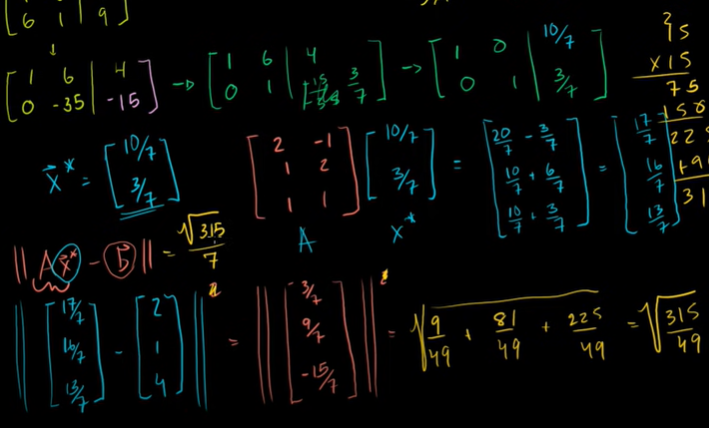 6 1 | 9
↓
[1 6 | 4; 0 -35 | -15] → [1 6 | 4; 0 1 | 3/7] → [1 0 | 10/7; 0 1 | 3/7]
35
x15
75
150
x⃗* = [10/7; 3/7]
[2 -1; 1 2; 1 1] [10/7; 3/7] = [20/7 - 3/7; 10/7 + 6/7; 10/7 + 3/7] = [17/7; 16/7; 13/7]
A x⃗*
||Ax⃗* - b⃗|| = √315/7
||[17/7; 16/7; 13/7] - [2; 1; 4]|| = ||[3/7; 9/7; -15/7]|| = √(9/49 + 81/49 + 225/49) = √(315/49)